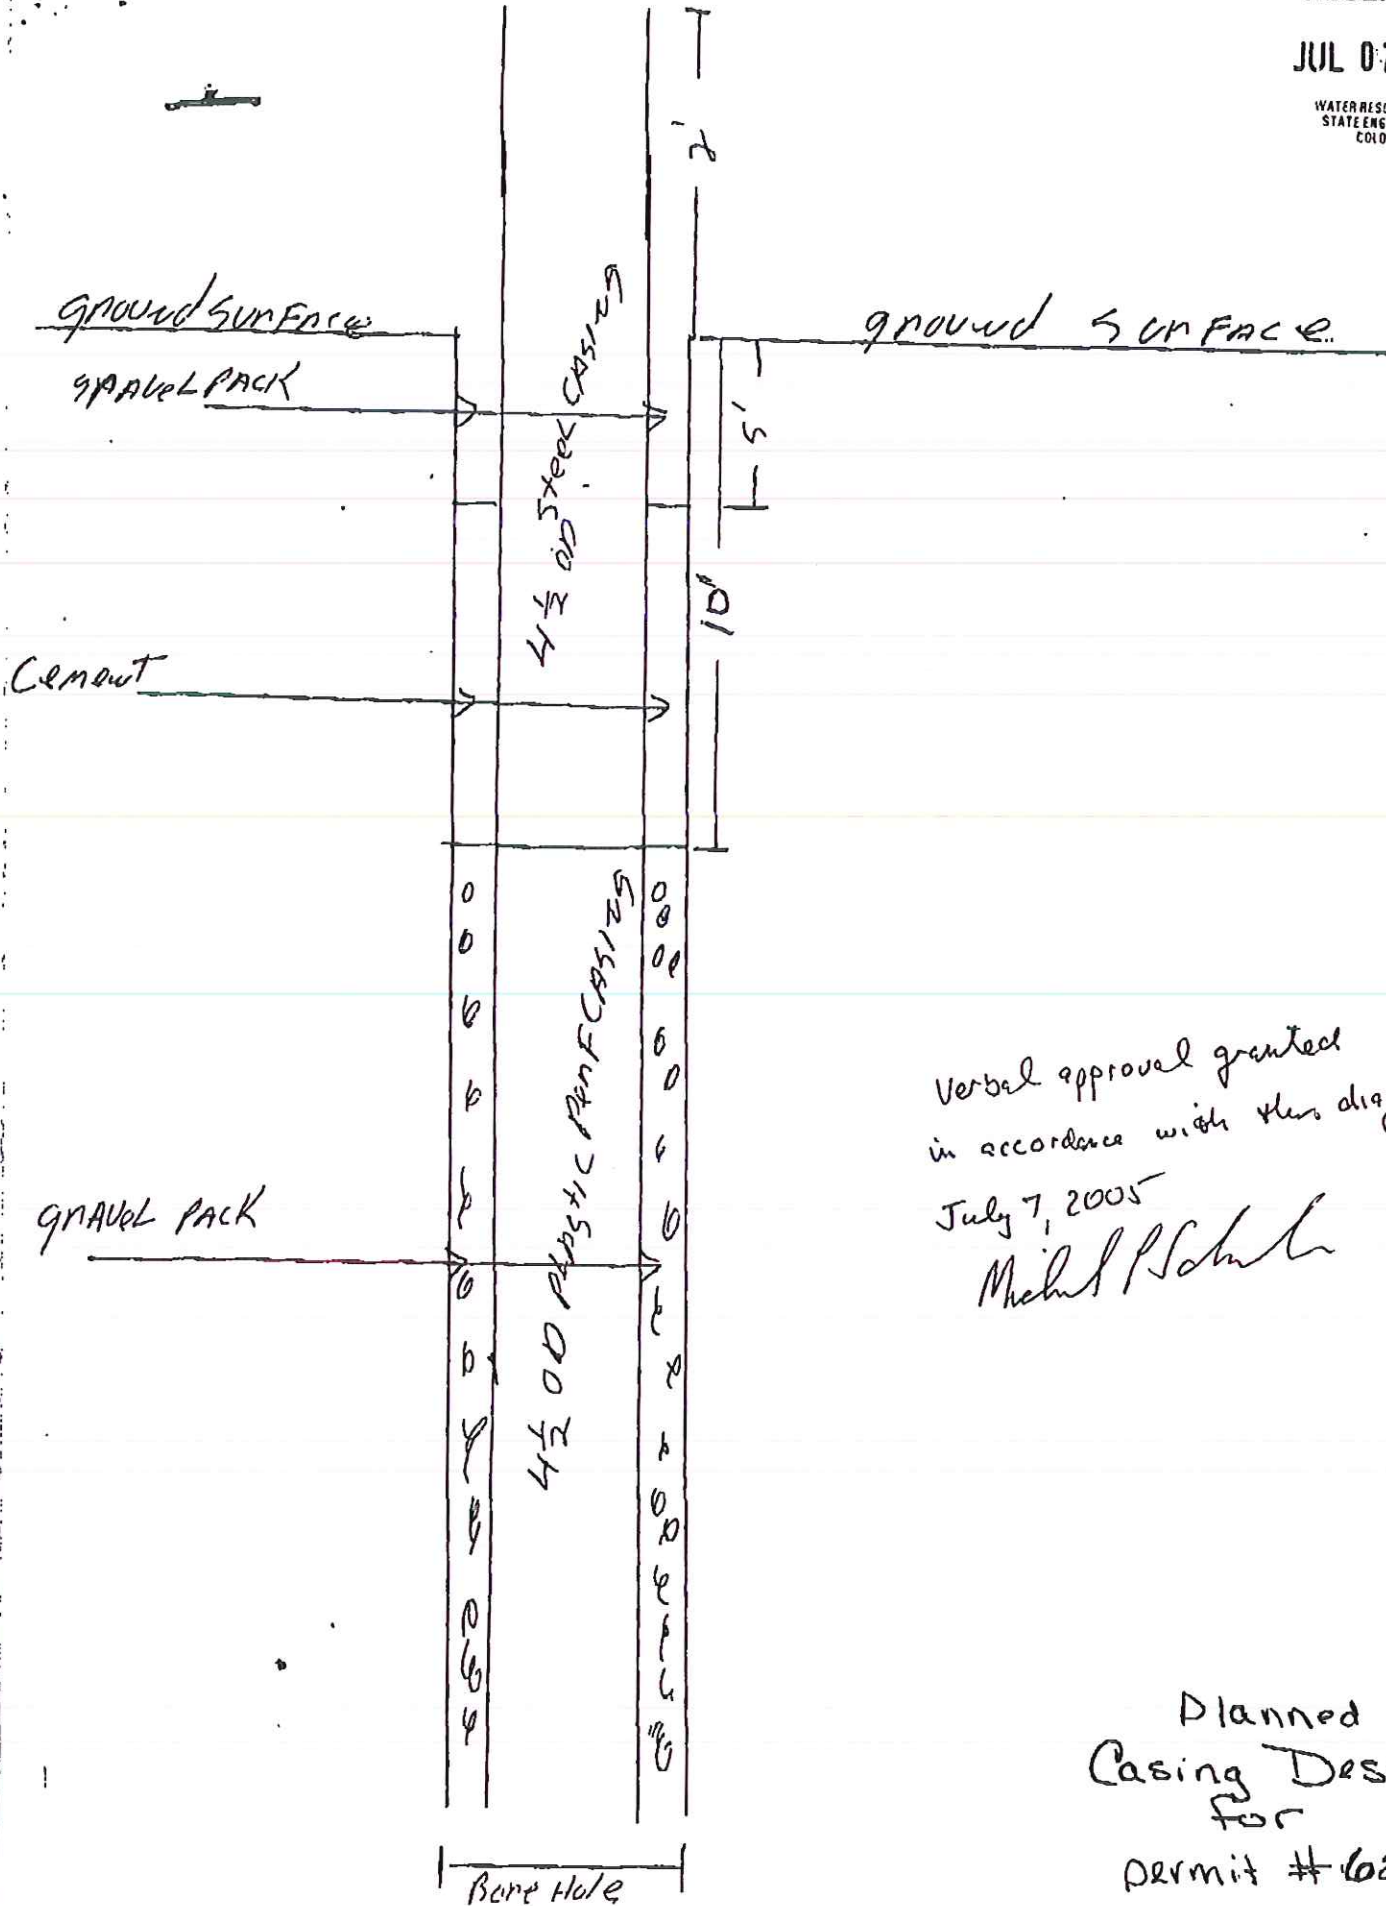 JUL 0
WATER RES
STATE ENG
COLO
2'
ground surface
ground surface
gravel pack
4 1/2 OD Steel casing
5'
10'
Cement
4 1/2 OD Plastic Perf casing
gravel pack
Verbal approval granted
in accordance with this diag
July 7, 2005
Planned
Casing Des
for
permit # 62
Bore Hole